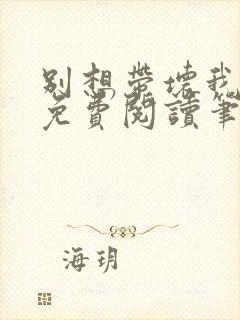 别想带坏我
免費閱讀筆
海玥